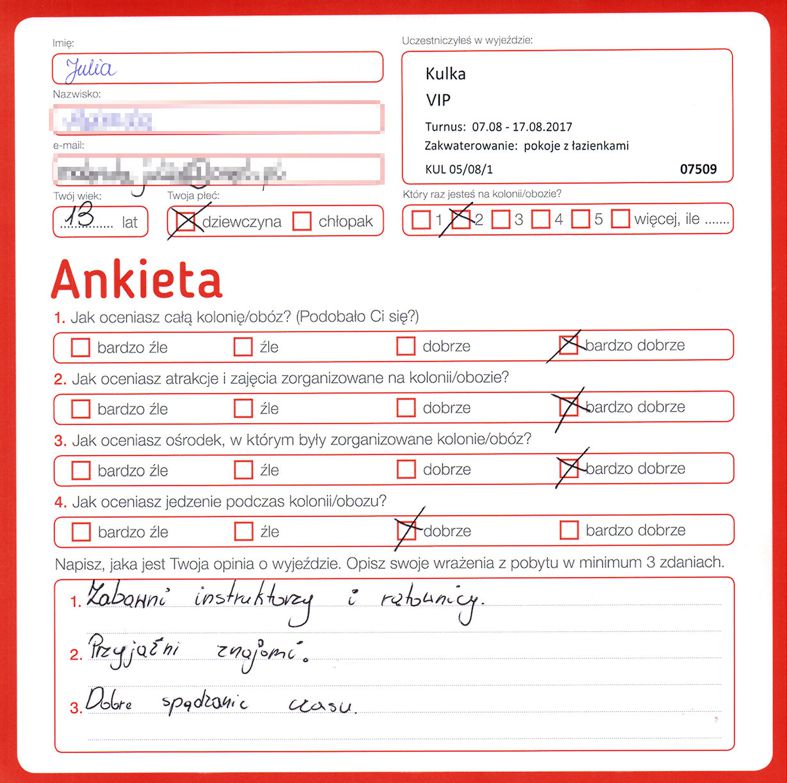 Imię:
Julia
Nazwisko:
e-mail:
Twój wiek:
13 lat
Twoja płeć:
dziewczyna chłopak
Uczestniczyłeś w wyjeździe:
Kulka
VIP
Turnus: 07.08 - 17.08.2017
Zakwaterowanie: pokoje z łazienkami
KUL 05/08/1 07509
Który raz jesteś na kolonii/obozie?
1 2 3 4 5 więcej, ile .......
Ankieta
1. Jak oceniasz całą kolonię/obóz? (Podobało Ci się?)
bardzo źle źle dobrze bardzo dobrze
2. Jak oceniasz atrakcje i zajęcia zorganizowane na kolonii/obozie?
bardzo źle źle dobrze bardzo dobrze
3. Jak oceniasz ośrodek, w którym były zorganizowane kolonie/obóz?
bardzo źle źle dobrze bardzo dobrze
4. Jak oceniasz jedzenie podczas kolonii/obozu?
bardzo źle źle dobrze bardzo dobrze
Napisz, jaka jest Twoja opinia o wyjeździe. Opisz swoje wrażenia z pobytu w minimum 3 zdaniach.
1. Zabawni instruktorzy i ratownicy.
2. Przyjaźni znajomi.
3. Dobre spądzanie czasu.